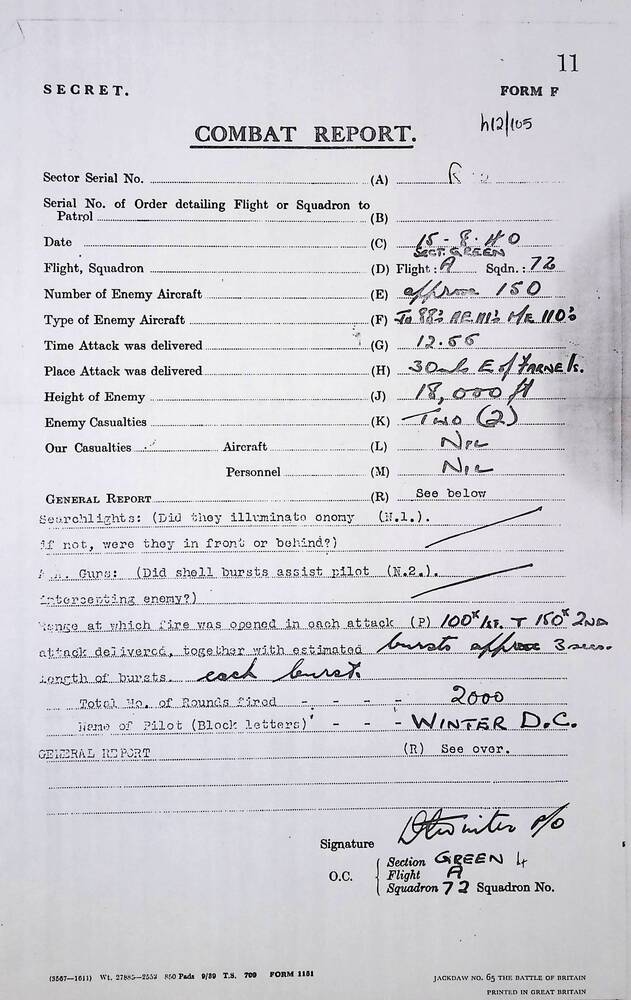 11
SECRET.
FORM F
h12/105
COMBAT REPORT.
Sector Serial No. (A)
Serial No. of Order detailing Flight or Squadron to
Patrol (B)
Date (C) 15-8-40
SECT. GREEN
Flight, Squadron (D) Flight: A Sqdn.: 72
Number of Enemy Aircraft (E) approx 150
Type of Enemy Aircraft (F) Ju 88s HE 111s ME 110s
Time Attack was delivered (G) 12.55
Place Attack was delivered (H) 30 mls E of FARNE Is.
Height of Enemy (J) 18,000 ft
Enemy Casualties (K) Two (2)
Our Casualties Aircraft (L) NIL
Personnel (M) NIL
GENERAL REPORT (R) See below
Searchlights: (Did they illuminate enemy (N.1.).
if not, were they in front or behind?)
A.A. Guns: (Did shell bursts assist pilot (N.2.).
intercepting enemy?)
Range at which fire was opened in each attack (P) 100x 1st. + 150x 2ND
attack delivered, together with estimated bursts approx 3 secs.
length of bursts. each burst.
Total No. of Rounds fired - - - - 2000
Name of Pilot (Block letters) - - - WINTER D.C.
GENERAL REPORT (R) See over.
Signature DCWinter P/O
Section GREEN 4
O.C. Flight A
Squadron 72 Squadron No.
(3567—1611) Wt. 27885—2553 850 Pads 9/39 T.S. 700 FORM 1151
JACKDAW NO. 65 THE BATTLE OF BRITAIN
PRINTED IN GREAT BRITAIN